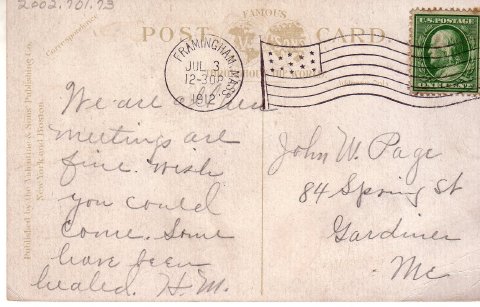 2002.701.73
FAMOUS
POST CARD
Correspondence
Published by The Valentine & Sons Publishing Co.
New York and Boston.
FRAMINGHAM, MASS.
JUL 3
12-30P
1912
U.S. POSTAGE
ONE CENT
We are
meetings are
fine. Wish
you could
come. Some
have been
healed. H. M.
John W. Page
84 Spring St
Gardiner
Me